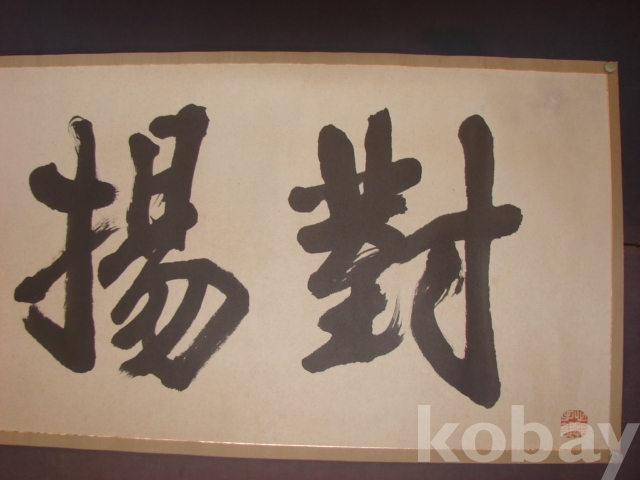 對揚
kobay